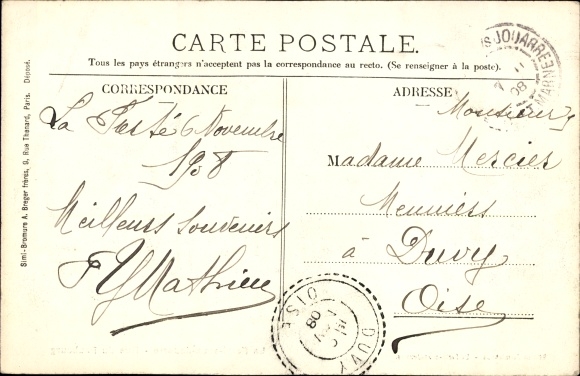 CARTE POSTALE.
Tous les pays étrangers n'acceptent pas la correspondance au recto. (Se renseigner à la poste).
CORRESPONDANCE
La Ferté 6 Novembre
1908
Meilleurs souvenirs
Mathieu
ADRESSE
Monsieur &
Madame Mercier
Meuniers
à Duvy
Oise
Simi-Bromure A. Breger frères, 9, Rue Thenard, Paris. Déposé.
JOUARRE
MARNE
08
DUVY
OISE
08